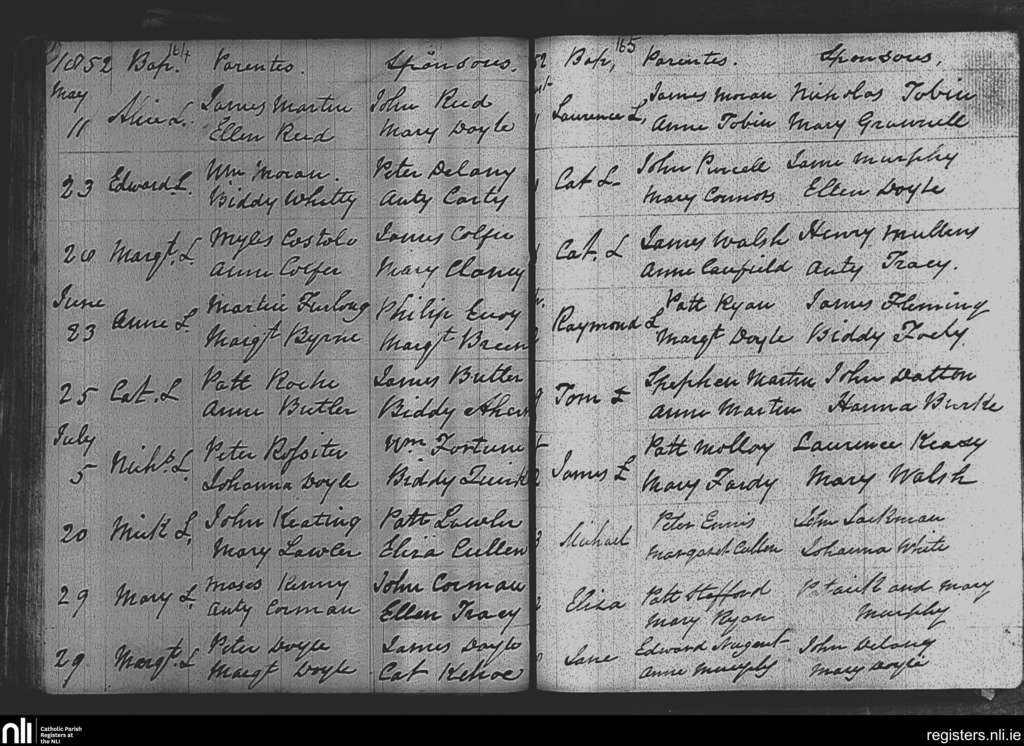 164
1852 Bap. Parentes. Sponsous.
May
11 Alice L. James Martin John Reed
Ellen Reed Mary Doyle
23 Edward L. Wm Moran. Peter Delany
Biddy Whitty Anty Carty
28 Margt. L. Myles Costolo James Colfer
Anne Colfer Mary Clancy
June
23 Anne L. Martin Furlong Philip Envoy
Margt Byrne Margt Breen
25 Cat. L Patt Roche James Butler
Anne Butler Biddy Ahern
July
5 Nichs L. Peter Rossiter Wm Fortune
Johanna Doyle Biddy Quirk
20 Mick L, John Keating Patt Lawler
Mary Lawler Eliza Cullen
29 Mary L. Moses Kenny John Corman
Anty Corman Ellen Tracy
29 Margt. L Peter Doyle James Doyle
Margt Doyle Cat Kehoe
165
52 Bap, Parentes. Sponsous,
Laurence L, James Moran Nicholas Tobin
Anne Tobin Mary Grawnell
Cat L- John Purcell Jame Murphy
Mary Connors Ellen Doyle
Cat. L James Walsh Henry Mullens
Anne Caufield Anty Tracy.
Raymond L Patt Ryan James Fleming
Margt Doyle Biddy Foely.
Tom L Spephen Martin John Datton
Anne Martin Hanna Burke
James L Patt Molloy Laurence Keasy
Mary Fardy Mary Walsh
Michael Peter Ennis John Sackman
Margaret Cullen Johanna White
Eliza Patt Stafford Ptaick and Mary
Mary Ryan Murphy
Jane Edward Nugent John Delany
Anne Murphy Mary Doyle
nli Catholic Parish
Registers at
the NLI
registers.nli.ie